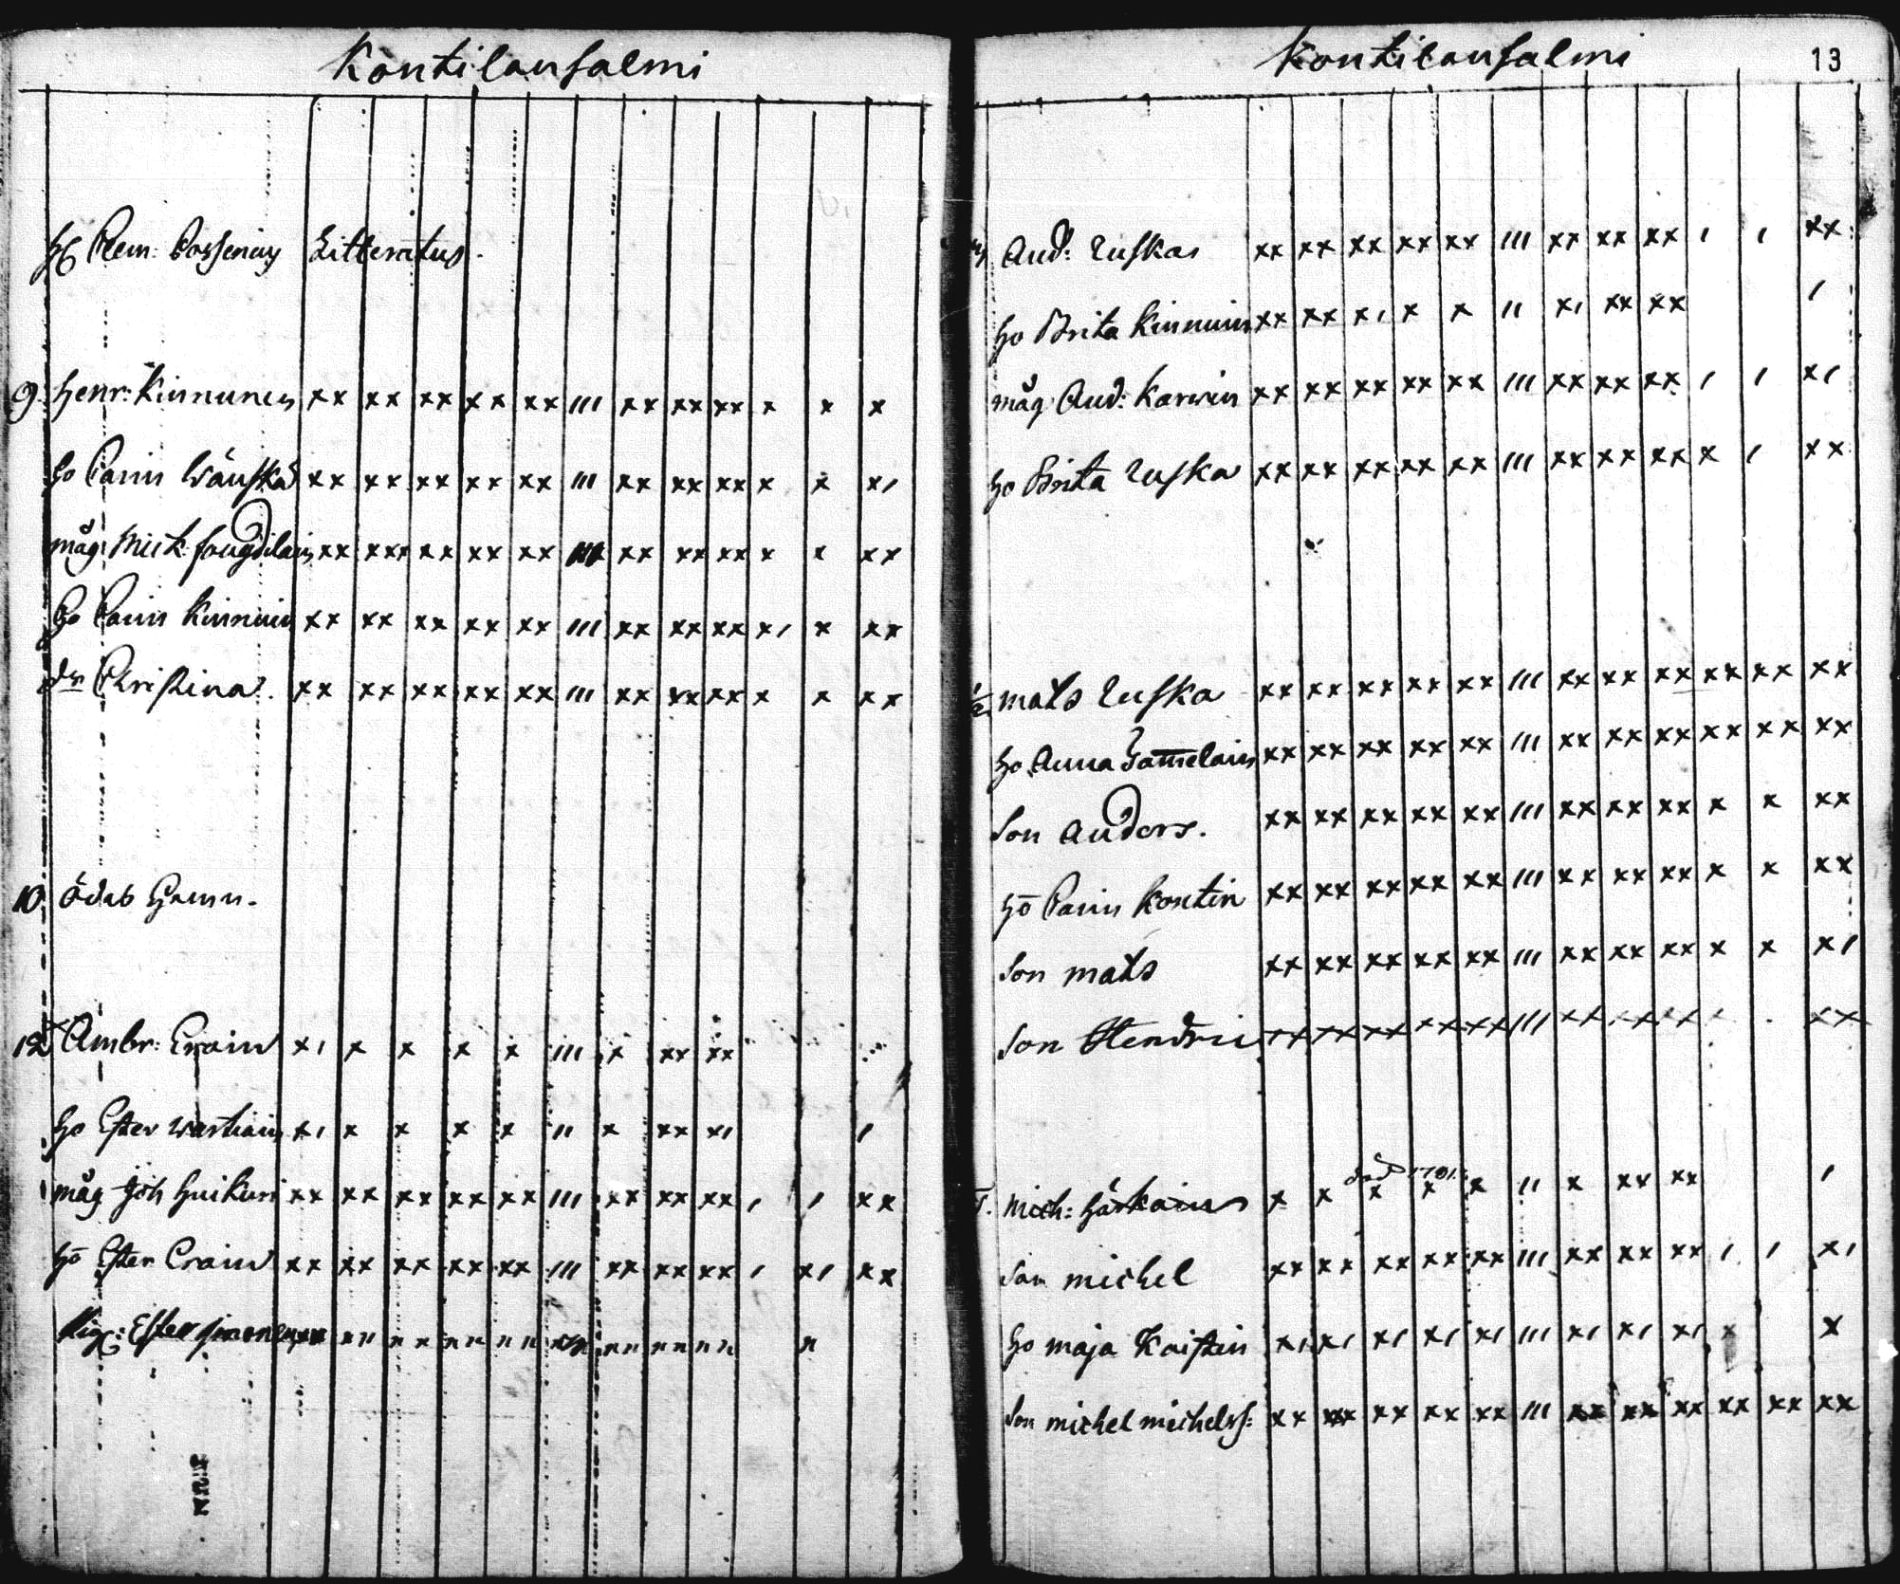 Kontilansalmi
Litteratus.
9. Henr: Kinnunen xx xx xx xx xx III xx xx xx x x x
ho Carin xx xx xx xx xx III xx xx xx x x x/
måg Mick xx xxx xx xx xx III xx xx xx x x xx
ho Carin Kinnuin xx xx xx xx xx III xx xx xx x/ x xx
dr Christina. xx xx xx xx xx III xx xx xx x x xx
10 Ödes Hemn.
12 Ambr: Crain x/ x x x x III x xx xx
ho Ester Wartiain x/ x x x x II x xx x/ /
måg Joh Huikuri xx xx xx xx xx III xx xx xx / / xx
ho Ester Crain xx xx xx xx xx III xx xx xx / x/ xx
Ester Simonen
Kontilansalmi 13
And: Ruskas xx xx xx xx xx III xx xx xx / / xx
ho Brita Kinnuin xx xx x/ x x II x/ xx xx /
måg And: Karvin xx xx xx xx xx III xx xx xx / / x/
ho Brita Ruska xx xx xx xx xx III xx xx xx x / xx
Mats Ruska xx xx xx xx xx III xx xx xx xx xx xx
ho Anna xx xx xx xx xx III xx xx xx xx xx xx
Son Anders. xx xx xx xx xx III xx xx xx x x xx
ho Carin Kontin xx xx xx xx xx III xx xx xx x x xx
Son Mats xx xx xx xx xx III xx xx xx x x x/
Son Hendric xx xx xx xx xx III xx xx xx xx
död
Mich: x x x x x II x xx xx /
Son Michel xx xx xx xx xx III xx xx xx / / x/
ho Maja Kaistin x/ x/ x/ x/ x/ III x/ x/ x/ x x
Son Michel Michelss: xx xx xx xx xx III xx xx xx xx xx xx